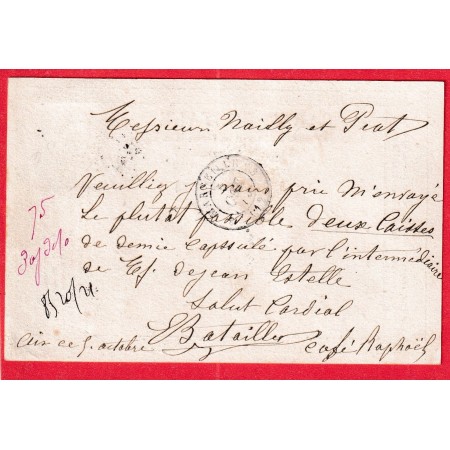 Messieurs Noilly et Prat
Veuilliez je vous prie m'envoyé
Le plutot possible deux Caisses
de demie capsulé par l'intermédiaire
de Mr. dejean Estelle
Salut Cordial
Batailler
Aix ce 5 octobre
café Raphaël
75